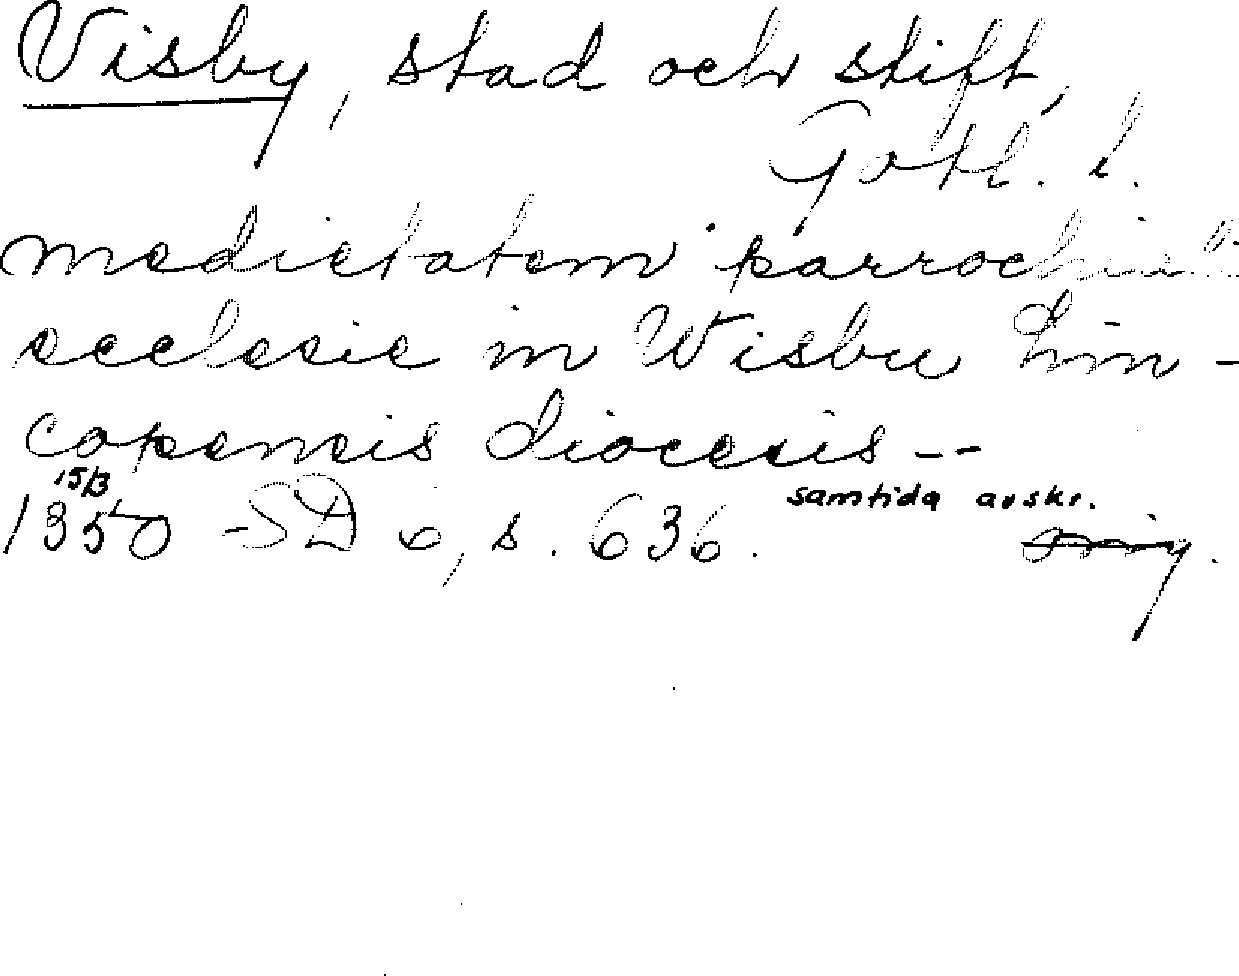 Visby, stad och stift,
Gotl. l.
medietatem parrochial
ecclesie in Wisbu Lin-
copensis diocesis --
15/3
1350 - SD 6, s. 636. samtida avskr.
orig.